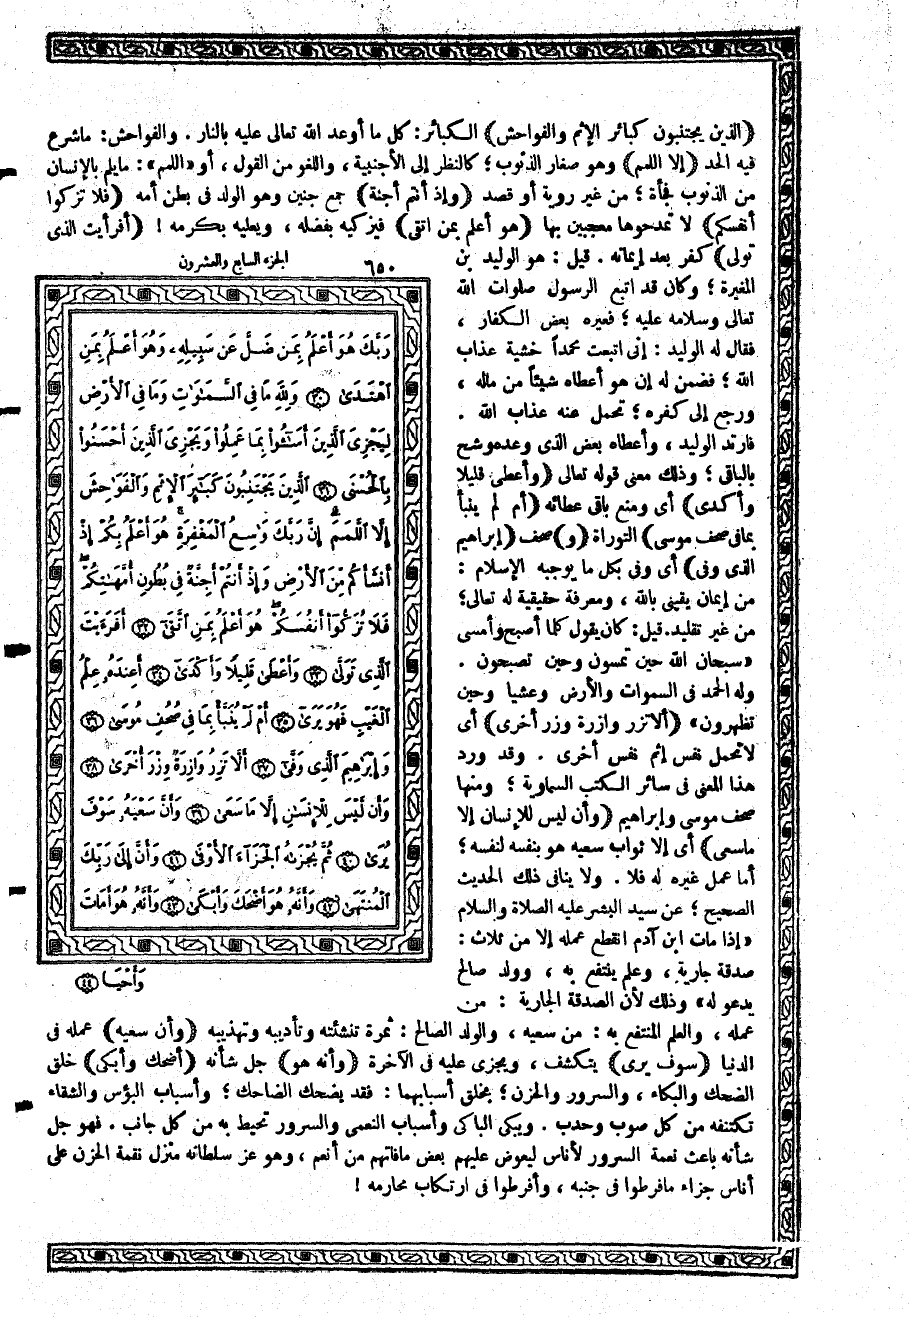 (الذين يجتنبون كبائر الإثم والفواحش) الكبائر: كل ما أوعد الله تعالى عليه بالنار . والفواحش: ماشرع
فيه الحد (إلا اللمم) وهو صغار الذنوب؛ كالنظر إلى الأجنبية، واللغو من القول، أو «اللمم»: مايلم بالإنسان
من الذنوب فجأة؛ من غير روية أو قصد (وإذ أنتم أجنة) جمع جنين وهو الولد فى بطن أمه (فلا تزكوا
أنفسكم) لا تمدحوها معجبين بها (هو أعلم بمن اتقى) فيزكيه بفضله، ويعليه بكرمه ! (أفرأيت الذى
تولى) كفر بعد إيمانه . قيل: هو الوليد بن
المغيرة؛ وكان قد اتبع الرسول صلوات الله
تعالى وسلامه عليه؛ فعيره بعض الكفار ،
فقال له الوليد: إنى اتبعت محمداً خشية عذاب
الله؛ فضمن له إن هو أعطاه شيئاً من ماله ،
ورجع إلى كفره؛ تحمل عنه عذاب الله .
فارتد الوليد، وأعطاه بعض الذى وعده وشح
بالباقى؛ وذلك معنى قوله تعالى (وأعطى قليلا
وأكدى) أى ومنع باقى عطائه (أم لم ينبأ
بما فى صحف موسى) التوراة (و) صحف (إبراهيم
الذى وفى) أى وفى بكل ما يوجبه الإسلام :
من إيمان يقينى بالله، ومعرفة حقيقية له تعالى؛
من غير تقليد. قيل: كان يقول كلما أصبح وأمسى
«سبحان الله حين تمسون وحين تصبحون .
وله الحمد فى السموات والأرض وعشيا وحين
تظهرون» (ألا تزر وازرة وزر أخرى) أى
لا تحمل نفس إثم نفس أخرى . وقد ورد
هذا المعنى فى سائر الكتب السماوية؛ ومنها
صحف موسى وإبراهيم (وأن ليس للإنسان إلا
ماسعى) أى إلا ثواب سعيه هو بنفسه لنفسه؛
أما عمل غيره له فلا . ولا ينافى ذلك الحديث
الصحيح؛ عن سيد البشر عليه الصلاة والسلام
«إذا مات ابن آدم انقطع عمله إلا من ثلاث:
صدقة جارية، وعلم ينتفع به، وولد صالح
يدعو له» وذلك لأن الصدقة الجارية : من
الجزء السابع والعشرون ٦٥٠
رَبَّكَ هُوَ أَعْلَمُ بِمَن ضَلَّ عَن سَبِيلِهِۦ وَهُوَ أَعْلَمُ بِمَنِ
ٱهْتَدَىٰ ٣٠ وَلِلَّهِ مَا فِى ٱلسَّمَٰوَٰتِ وَمَا فِى ٱلْأَرْضِ
لِيَجْزِىَ ٱلَّذِينَ أَسَٰٓـُٔوا۟ بِمَا عَمِلُوا۟ وَيَجْزِىَ ٱلَّذِينَ أَحْسَنُوا۟
بِٱلْحُسْنَى ٣١ ٱلَّذِينَ يَجْتَنِبُونَ كَبَٰٓئِرَ ٱلْإِثْمِ وَٱلْفَوَٰحِشَ
إِلَّا ٱللَّمَمَ ۚ إِنَّ رَبَّكَ وَٰسِعُ ٱلْمَغْفِرَةِ ۚ هُوَ أَعْلَمُ بِكُمْ إِذْ
أَنشَأَكُم مِّنَ ٱلْأَرْضِ وَإِذْ أَنتُمْ أَجِنَّةٌ فِى بُطُونِ أُمَّهَٰتِكُمْ ۖ
فَلَا تُزَكُّوٓا۟ أَنفُسَكُمْ ۖ هُوَ أَعْلَمُ بِمَنِ ٱتَّقَىٰٓ ٣٢ أَفَرَءَيْتَ
ٱلَّذِى تَوَلَّىٰ ٣٣ وَأَعْطَىٰ قَلِيلًا وَأَكْدَىٰٓ ٣٤ أَعِندَهُۥ عِلْمُ
ٱلْغَيْبِ فَهُوَ يَرَىٰٓ ٣٥ أَمْ لَمْ يُنَبَّأْ بِمَا فِى صُحُفِ مُوسَىٰ ٣٦
وَإِبْرَٰهِيمَ ٱلَّذِى وَفَّىٰٓ ٣٧ أَلَّا تَزِرُ وَازِرَةٌ وِزْرَ أُخْرَىٰ ٣٨
وَأَن لَّيْسَ لِلْإِنسَٰنِ إِلَّا مَا سَعَىٰ ٣٩ وَأَنَّ سَعْيَهُۥ سَوْفَ
يُرَىٰ ٤٠ ثُمَّ يُجْزَىٰهُ ٱلْجَزَآءَ ٱلْأَوْفَىٰ ٤١ وَأَنَّ إِلَىٰ رَبِّكَ
ٱلْمُنتَهَىٰ ٤٢ وَأَنَّهُۥ هُوَ أَضْحَكَ وَأَبْكَىٰ ٤٣ وَأَنَّهُۥ هُوَ أَمَاتَ
وَأَحْيَا ٤٤
عمله، والعلم المنتفع به: من سعيه، والولد الصالح: ثمرة تنشئته وتأديبه وتهذيبه (وأن سعيه) عمله فى
الدنيا (سوف يرى) يتكشف، ويجزى عليه فى الآخرة (وأنه هو) جل شأنه (أضحك وأبكى) خلق
الضحك والبكاء، والسرور والحزن؛ بخلق أسبابهما: فقد يضحك الضاحك؛ وأسباب البؤس والشقاء
تكتنفه من كل صوب وحدب . ويبكى الباكى وأسباب النعمى والسرور تحيط به من كل جانب . فهو جل
شأنه باعث نعمة السرور لأناس ليعوض عليهم بعض مافاتهم من أنعم، وهو عز سلطانه منزل نقمة الحزن على
أناس جزاء مافرطوا فى جنبه، وأفرطوا فى ارتكاب محارمه !